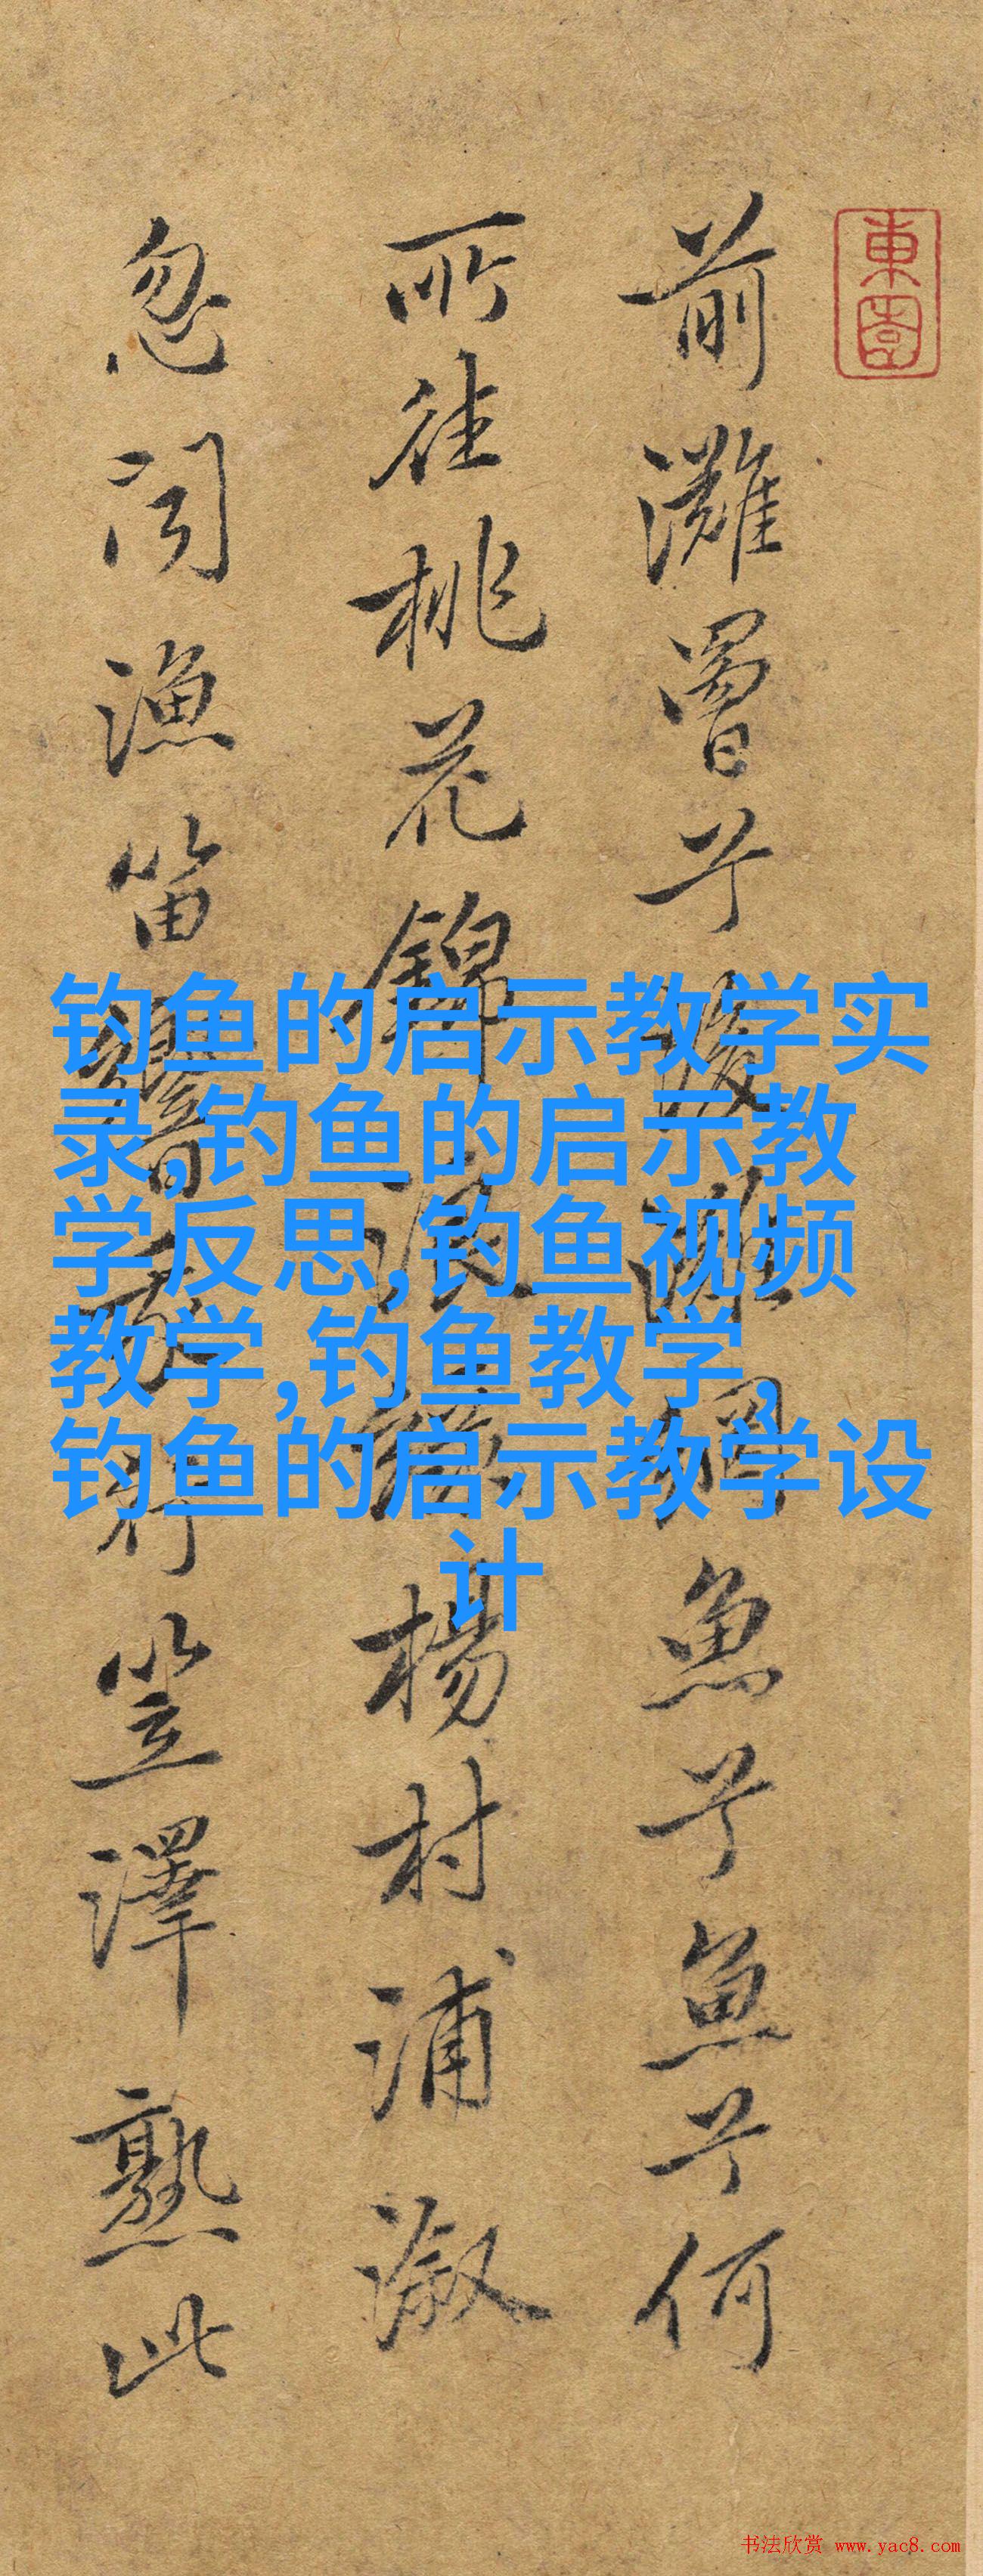 東園
前灘罾兮後灘網魚兮魚兮何
所往桃花錦浪綠楊村浦溆
忽聞漁笛響蓑衣笠澤熟此
钓鱼的启示教学实
录,钓鱼的启示教
学反思,钓鱼视频
教学,钓鱼教学,
钓鱼的启示教学设
计
书法欣赏 www.yac8.com